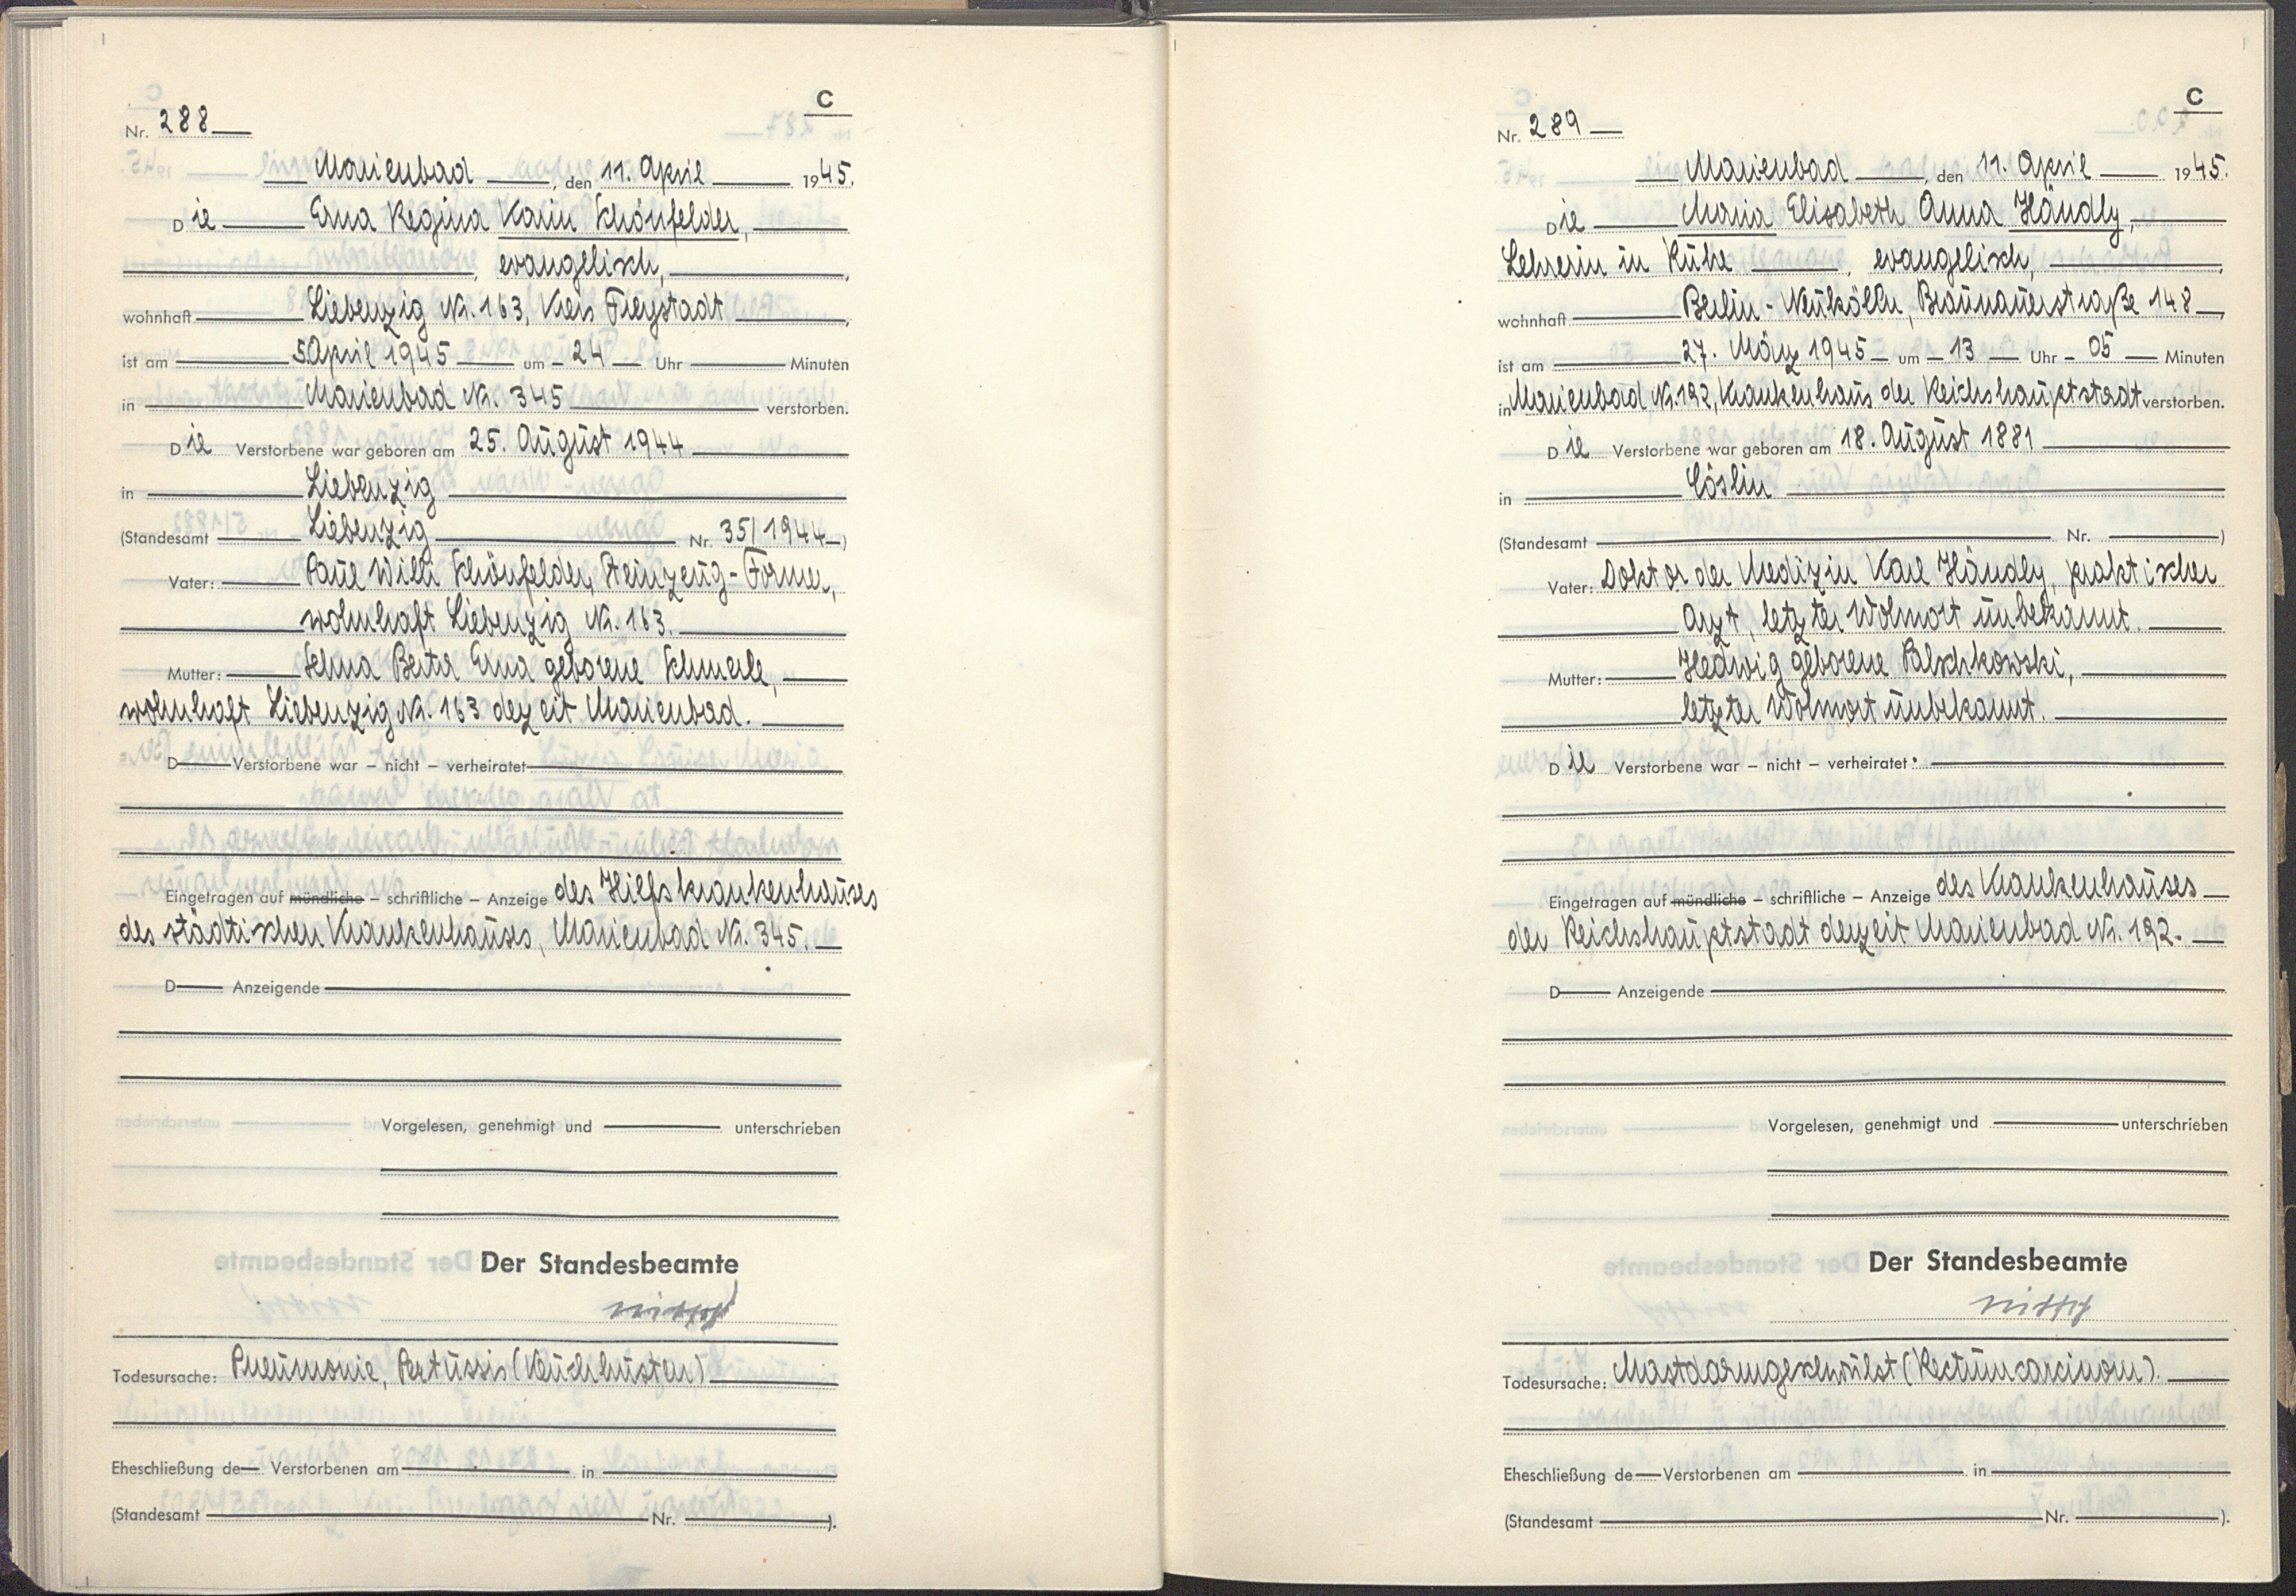 C
Nr. 288
Marienbad, den 11. April 1945.
Die Erna Regina Karin Schönfelder,
, evangelisch,
wohnhaft Liebenzig Nr. 163, Kreis Freystadt
ist am 5. April 1945 um 24 Uhr Minuten
in Marienbad Nr. 345 verstorben.
Die Verstorbene war geboren am 25. August 1944
in Liebenzig
(Standesamt Liebenzig Nr. 35/1944)
Vater: Paul Willi Schönfelder, Steinzeug-Former,
wohnhaft Liebenzig Nr. 163.
Mutter: Selma Berta Erna geborene Schmerle,
wohnhaft Liebenzig Nr. 163 derzeit Marienbad.
D Verstorbene war – nicht – verheiratet
Eingetragen auf mündliche – schriftliche – Anzeige des Hilfskrankenhauses
des städtischen Krankenhauses, Marienbad Nr. 345.
D Anzeigende
Vorgelesen, genehmigt und unterschrieben
Der Standesbeamte
Todesursache: Pneumonie, Pertussis (Keuchhusten)
Eheschließung de Verstorbenen am in
(Standesamt Nr. ).
C
Nr. 289
Marienbad, den 11. April 1945.
Die Maria Elisabeth Anna Händly,
Lehrerin in Ruhe, evangelisch,
wohnhaft Berlin-Neukölln, Braunauerstraße 148
ist am 27. März 1945 um 13 Uhr 05 Minuten
in Marienbad Nr. 192, Krankenhaus der Reichshauptstadt verstorben.
Die Verstorbene war geboren am 18. August 1881
in Cöslin
(Standesamt Nr. )
Vater: Doktor der Medizin Karl Händly, praktischer
Arzt, letzter Wohnort unbekannt.
Mutter: Hedwig geborene Palschkowski,
letzter Wohnort unbekannt.
Die Verstorbene war – nicht – verheiratet.
Eingetragen auf mündliche – schriftliche – Anzeige des Krankenhauses
der Reichshauptstadt derzeit Marienbad Nr. 192.
D Anzeigende
Vorgelesen, genehmigt und unterschrieben
Der Standesbeamte
Todesursache: Mastdarmgeschwulst (Rectumcarcinom).
Eheschließung de Verstorbenen am in
(Standesamt Nr. ).